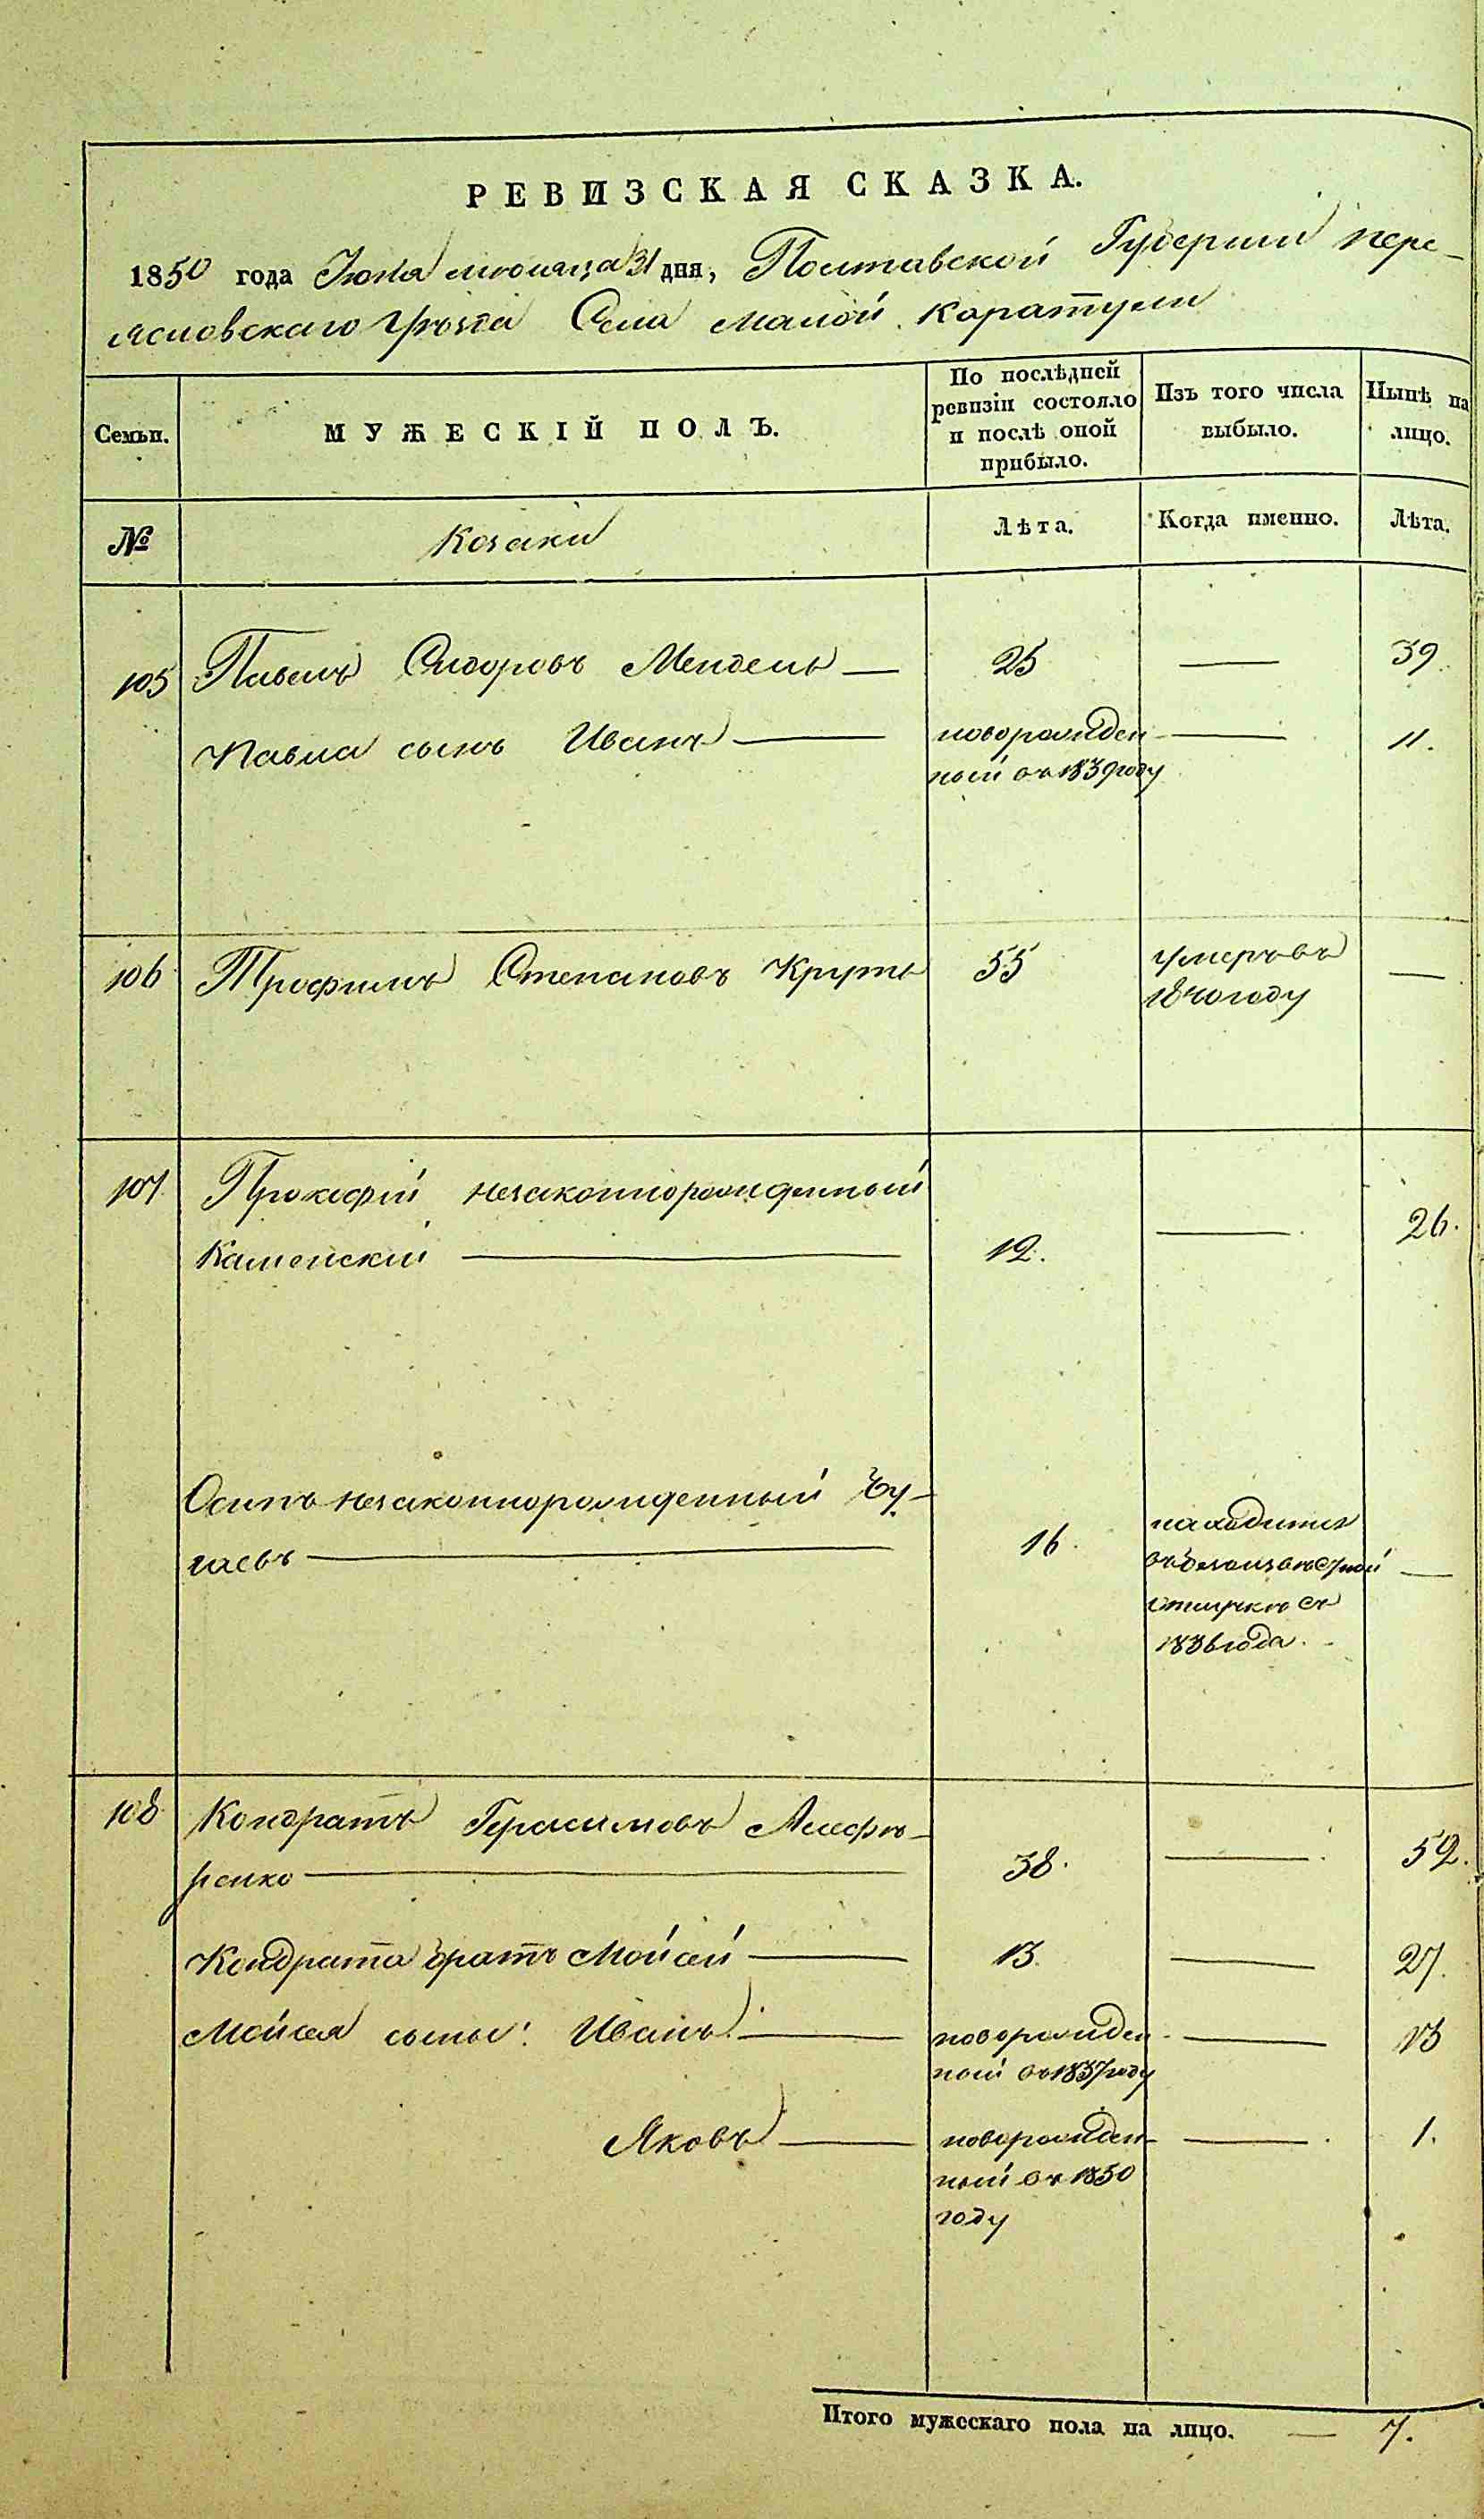 РЕВИЗСКАЯ СКАЗКА.
1850 года Іюля месяца 31 дня, Полтавской Губерніи пере-
яславскаго уѣзда Села малой Каратули
Семьи.
МУЖЕСКІЙ ПОЛЪ.
По послѣдней
ревизіи состояло
и послѣ оной
прибыло.
Изъ того числа
выбыло.
Нынѣ на
лицо.
№
Козаки
Лѣта.
Когда именно.
Лѣта.
105 Павелъ Сидоровъ Мендель — 25 — 39.
Павла сынъ Иванъ — новорожден- — 11.
ный въ 1839 году
106 Трофимъ Степановъ Круть 55 умеръ въ —
1840 году
107 Прокофій незаконнорожденный
Каменскій — 12. — 26.
Осипъ незаконнорожденный Бу-
гаевъ — 16. находится
въ безъизвѣстной —
отлучкѣ съ
1836 года.
108 Кондратъ Герасимовъ Алефѣ-
ренко — 38. — 52.
Кондрата братъ Мойсей — 13. — 27.
Мойсея сыны: Иванъ — новорожден- — 13
ный въ 1837 году
Яковъ — новорожден- — 1.
ный въ 1850
году
Итого мужескаго пола на лицо. — 7.